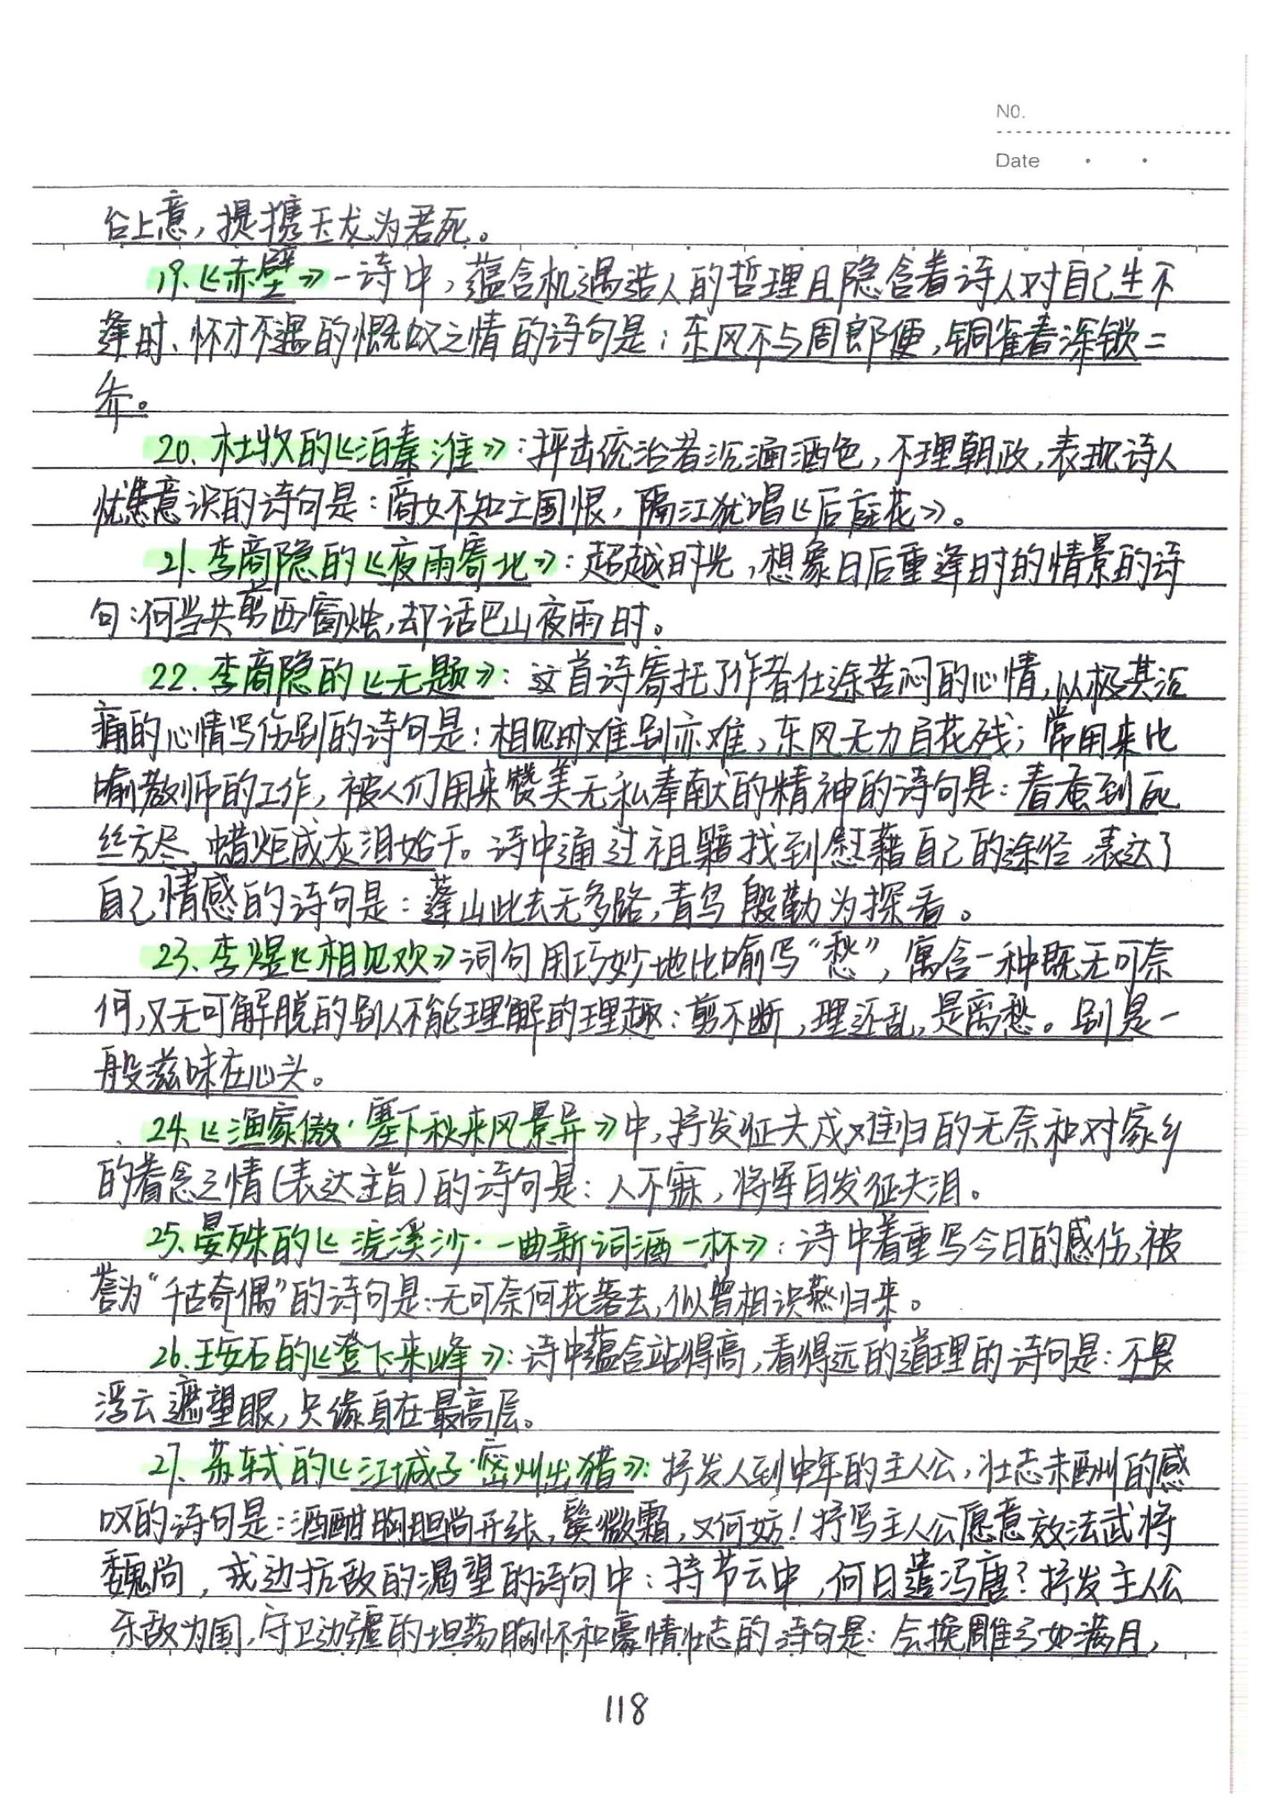 NO.
Date
台上意，提携玉龙为君死。
19.《赤壁》一诗中，蕴含机遇造人的哲理且隐含着诗人对自己生不
逢时、怀才不遇的慨叹之情的诗句是：东风不与周郎便，铜雀春深锁二
乔。
20.杜牧的《泊秦淮》：抨击统治者沉湎酒色，不理朝政，表现诗人
忧患意识的诗句是：商女不知亡国恨，隔江犹唱《后庭花》。
21.李商隐的《夜雨寄北》：超越时光，想象日后重逢时的情景的诗
句：何当共剪西窗烛，却话巴山夜雨时。
22.李商隐的《无题》：这首诗寄托了作者仕途苦闷的心情，以极其沉
痛的心情写伤别的诗句是：相见时难别亦难，东风无力百花残；常用来比
喻教师的工作，被人们用来赞美无私奉献的精神的诗句是：春蚕到死
丝方尽，蜡炬成灰泪始干。诗中通过祖籍找到慰藉自己的途径，表达了
自己情感的诗句是：蓬山此去无多路，青鸟殷勤为探看。
23.李煜《相见欢》词句用巧妙地比喻写“愁”，寓含一种既无可奈
何，又无可解脱的别人不能理解的理趣：剪不断，理还乱，是离愁。别是一
般滋味在心头。
24.《渔家傲·塞下秋来风景异》中，抒发征夫戍难归的无奈和对家乡
的眷念之情（表达主旨）的诗句是：人不寐，将军白发征夫泪。
25.晏殊的《浣溪沙·一曲新词酒一杯》：诗中着重写今日的感伤，被
誉为“千古奇偶”的诗句是：无可奈何花落去，似曾相识燕归来。
26.王安石的《登飞来峰》：诗中蕴含站得高，看得远的道理的诗句是：不畏
浮云遮望眼，只缘身在最高层。
27.苏轼的《江城子·密州出猎》：抒发人到中年的主人公，壮志未酬的感
叹的诗句是：酒酣胸胆尚开张，鬓微霜，又何妨！抒写主人公愿意效法武将
魏尚，戍边抗敌的渴望的诗句中：持节云中，何日遣冯唐？抒发主人公
杀敌为国，守卫边疆的坦荡胸怀和豪情壮志的诗句是：会挽雕弓如满月，
118